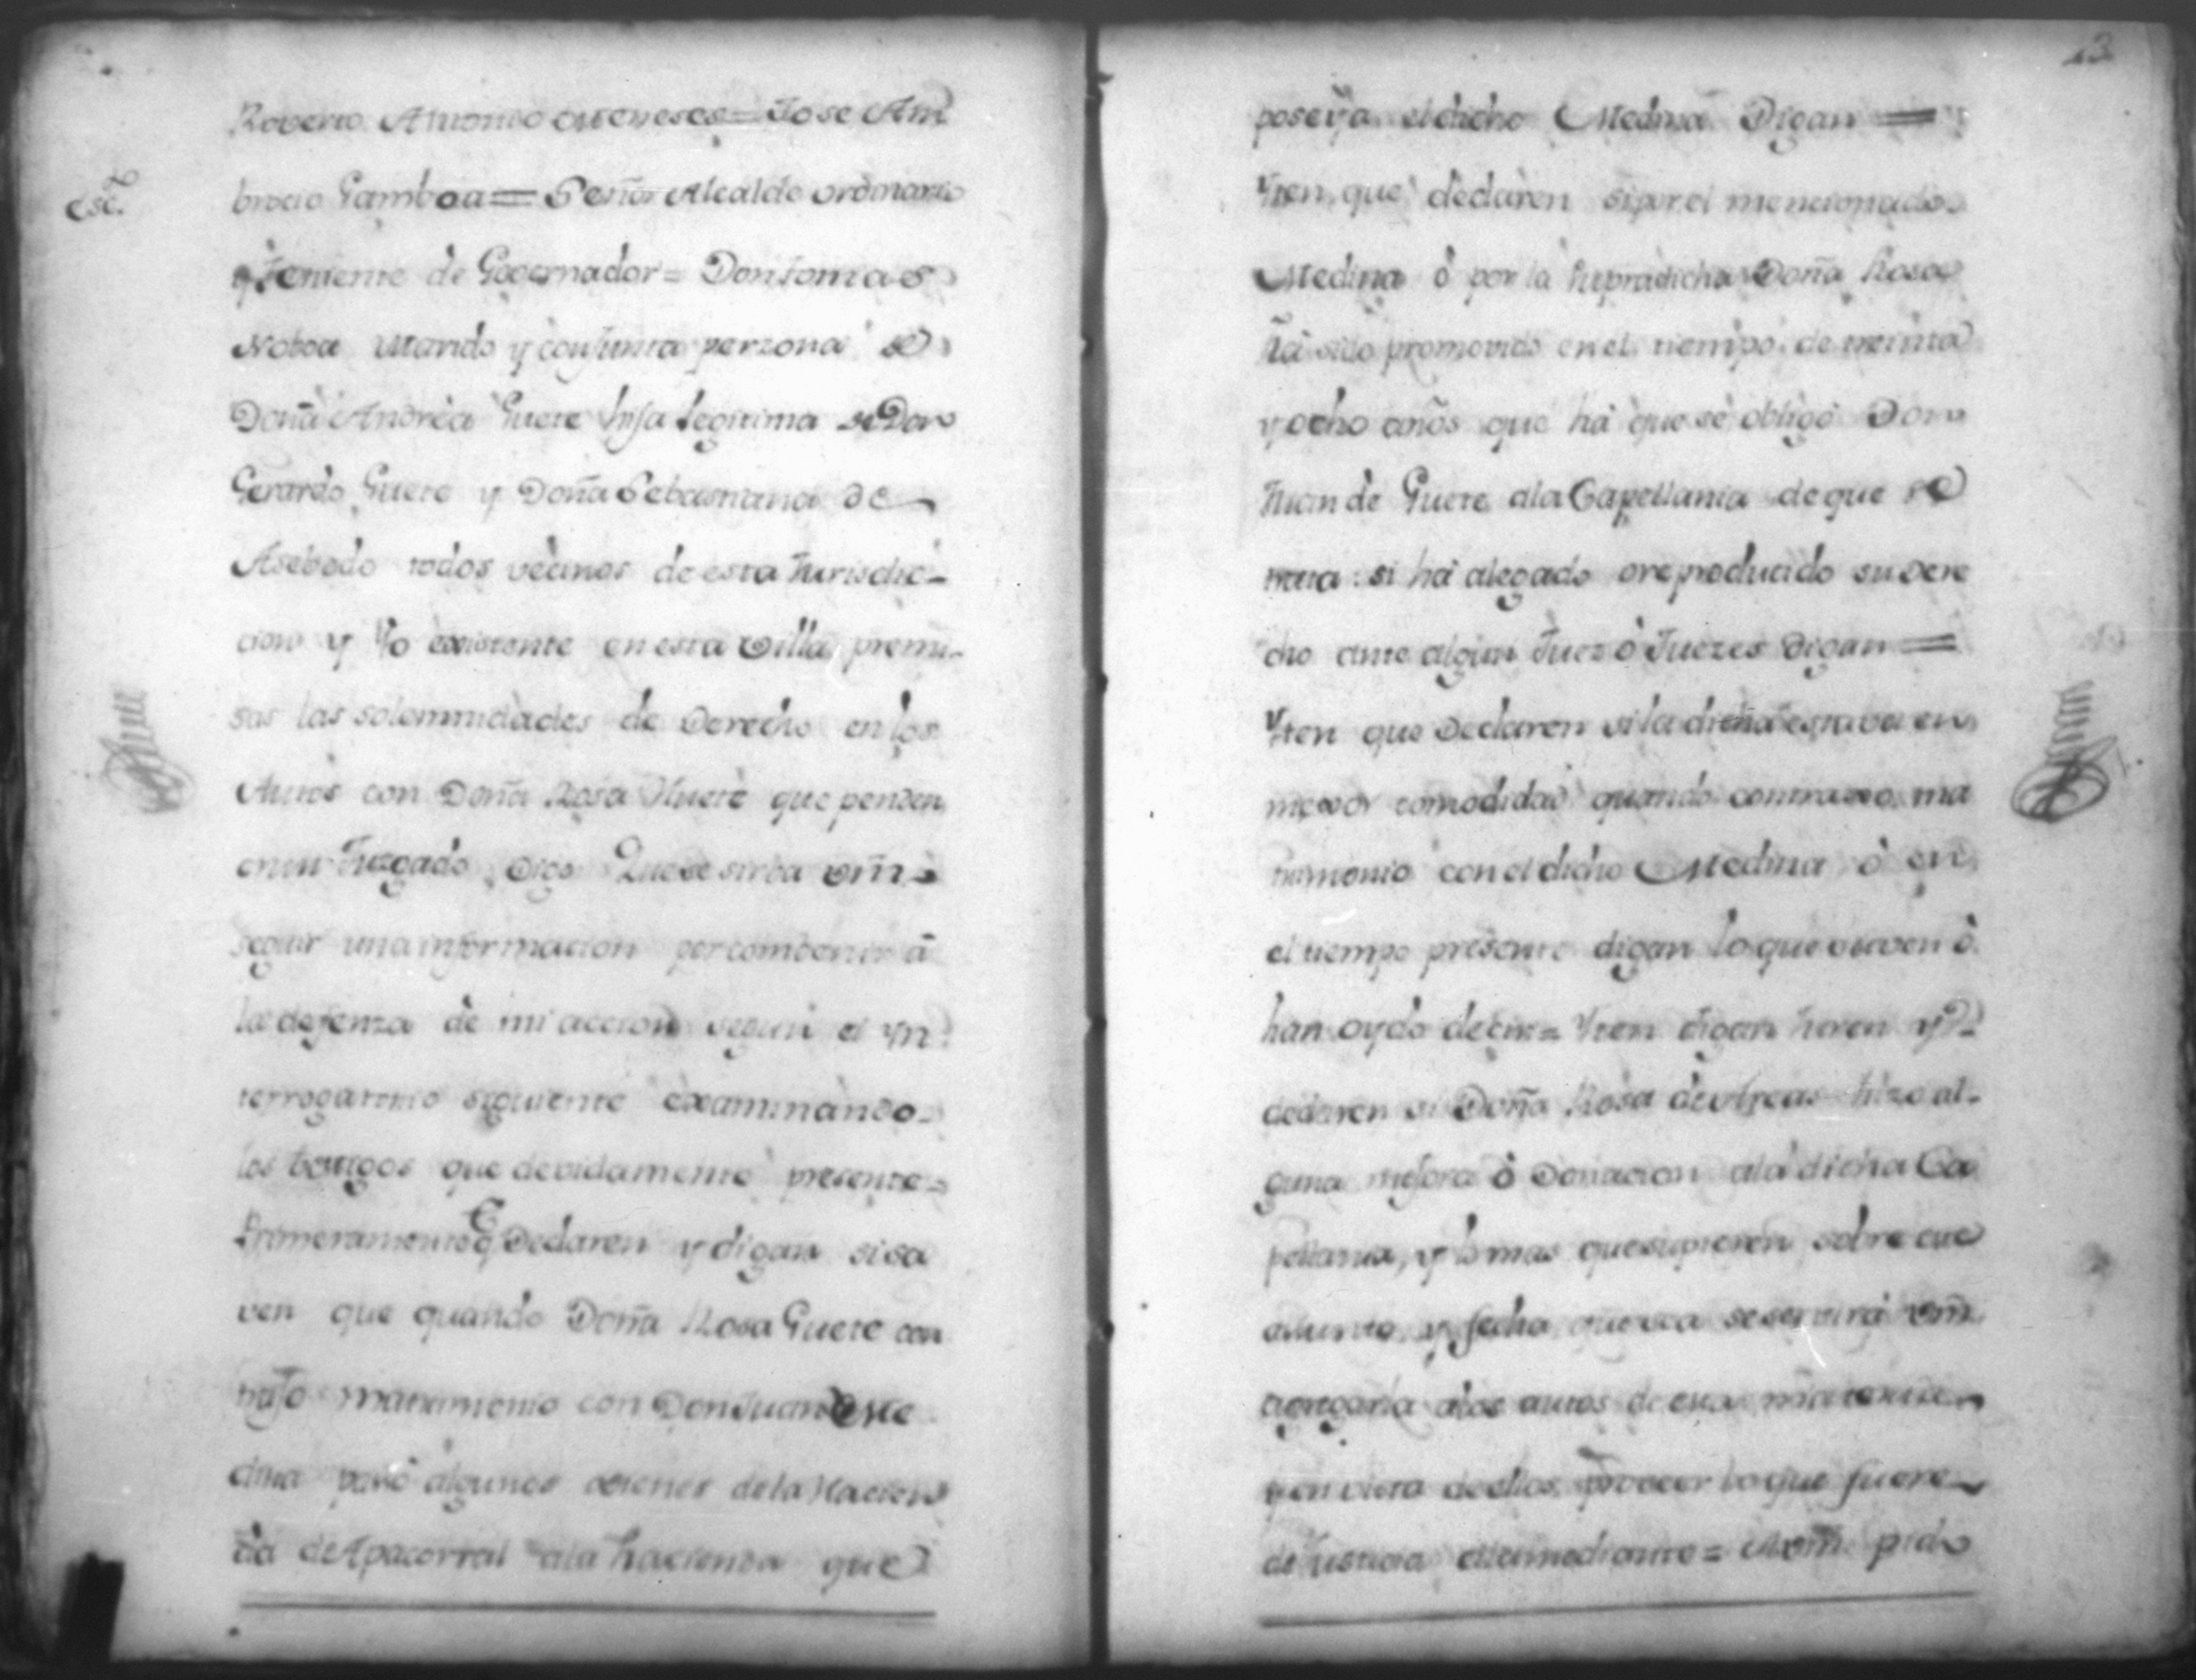 Roverto Antonio Meneses = Jose Am
Esc.to
brocio Gamboa = Señor Alcalde ordinario
y Teniente de Governador = Don Tomas
Noboa Marido y conjunta perzona de
Doña Andrea Guete hija legitima de Don
Gerardo Guete y Doña Sebastiana de
Asebedo todos vecinos de esta Jurisdic-
cion y Yo existente en esta Villa premi-
sas las solemnidades de Derecho en los
Autos con Doña Rosa Huete que penden
en su Juzgado, Digo Que se sirba vm̃
seguir una informacion por combenir á
la defenza de mi accion segun el Yn
terrogatorio siguiente examinando
los testigos que devidamente presente =
Primeramente q̃ Declaren y digan si sa
ven que quando Doña Rosa Guete con
trajo matrimonio con Don Juan de Me
dina pasó algunos vienes de la Hacien
da de Apacorral a la hacienda que
23
poseÿa el dicho Medina Digan =
Yten que declaren si por el mencionado
Medina ó por la supradicha Doña Rosa
há sido promovido en el tiempo de treinta
y ocho años que há que se obligó Don
Juan de Guete a la Capellania de que se
trata si há alegado o reproducido su dere
cho ante algun Juez ó Juezes Digan =
Yten que Declaren si la dicha estava en
mexor comodidad quando contraxo ma
trimonio con el dicho Medina ó en
el tiempo presente digan lo que saven ó
han oydo decir = Yten digan juren y
declaren si Doña Rosa de hizo al-
guna mejora ó Donacion a la dicha Ca
pellania, y lo mas que supieren sobre este
asunto, y fecha que sea se servirá vm̃
agregarla a los autos de esta materia
y en vista de ellos, proveer lo que fuere
de Justicia mediante = A vm̃ pido